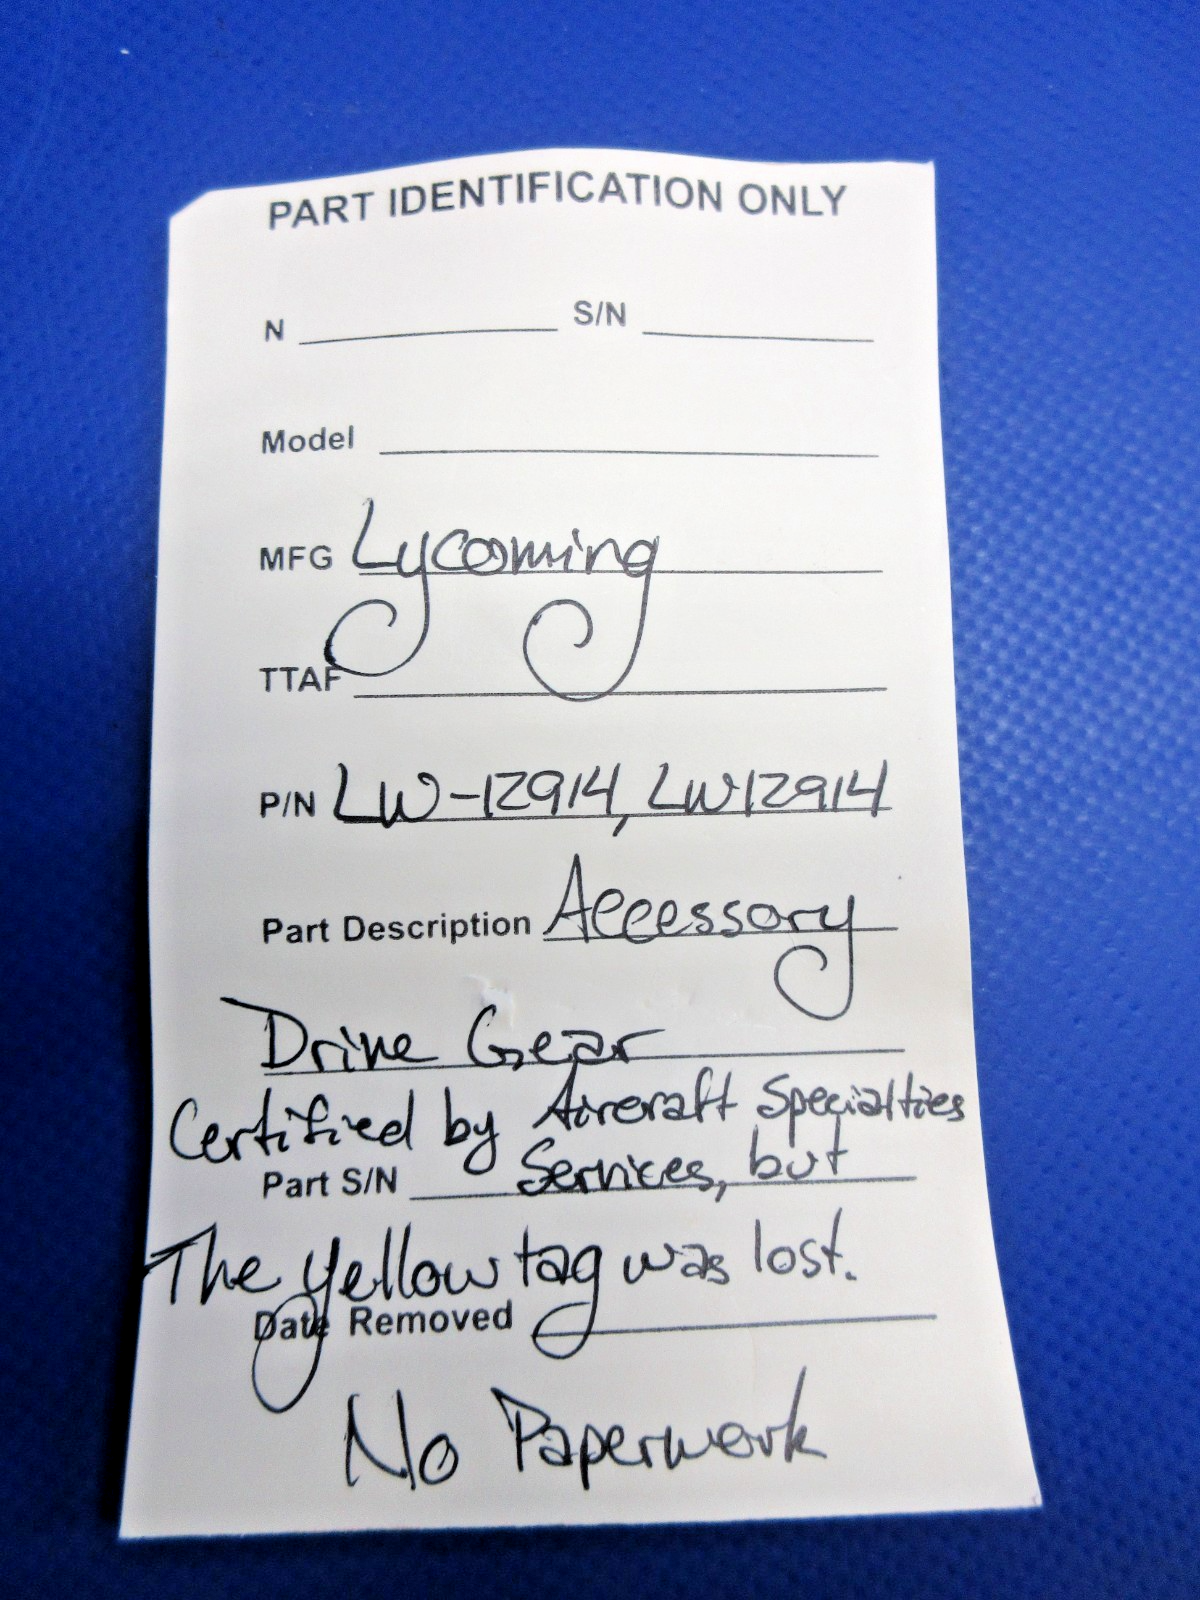 PART IDENTIFICATION ONLY
N S/N
Model
MFG Lycoming
TTAF
P/N LW-12914, LW12914
Part Description Accessory
Drive Gear
Certified by Aircraft Specialties
Part S/N Services, but
The yellow tag was lost.
Date Removed
No Paperwork